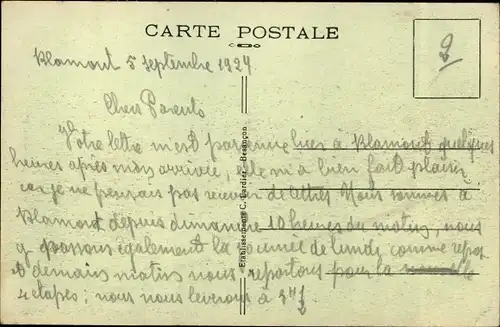 CARTE POSTALE
2
Blamont 5 Septembre 1924
Chers Parents
Votre lettre m'est parvenue hier à Blamont quelques
heures après mon arrivée, elle m'a bien fait plaisir
car je ne pensais pas recevoir de lettres. Nous sommes à
Blamont depuis dimanche 10 heures du matin, nous
y passons également la journée de lundi comme repos
et demain matin nous repartons pour la
4 étapes; nous nous leverons à 3H½
Etablissements C. Lardier - Besançon